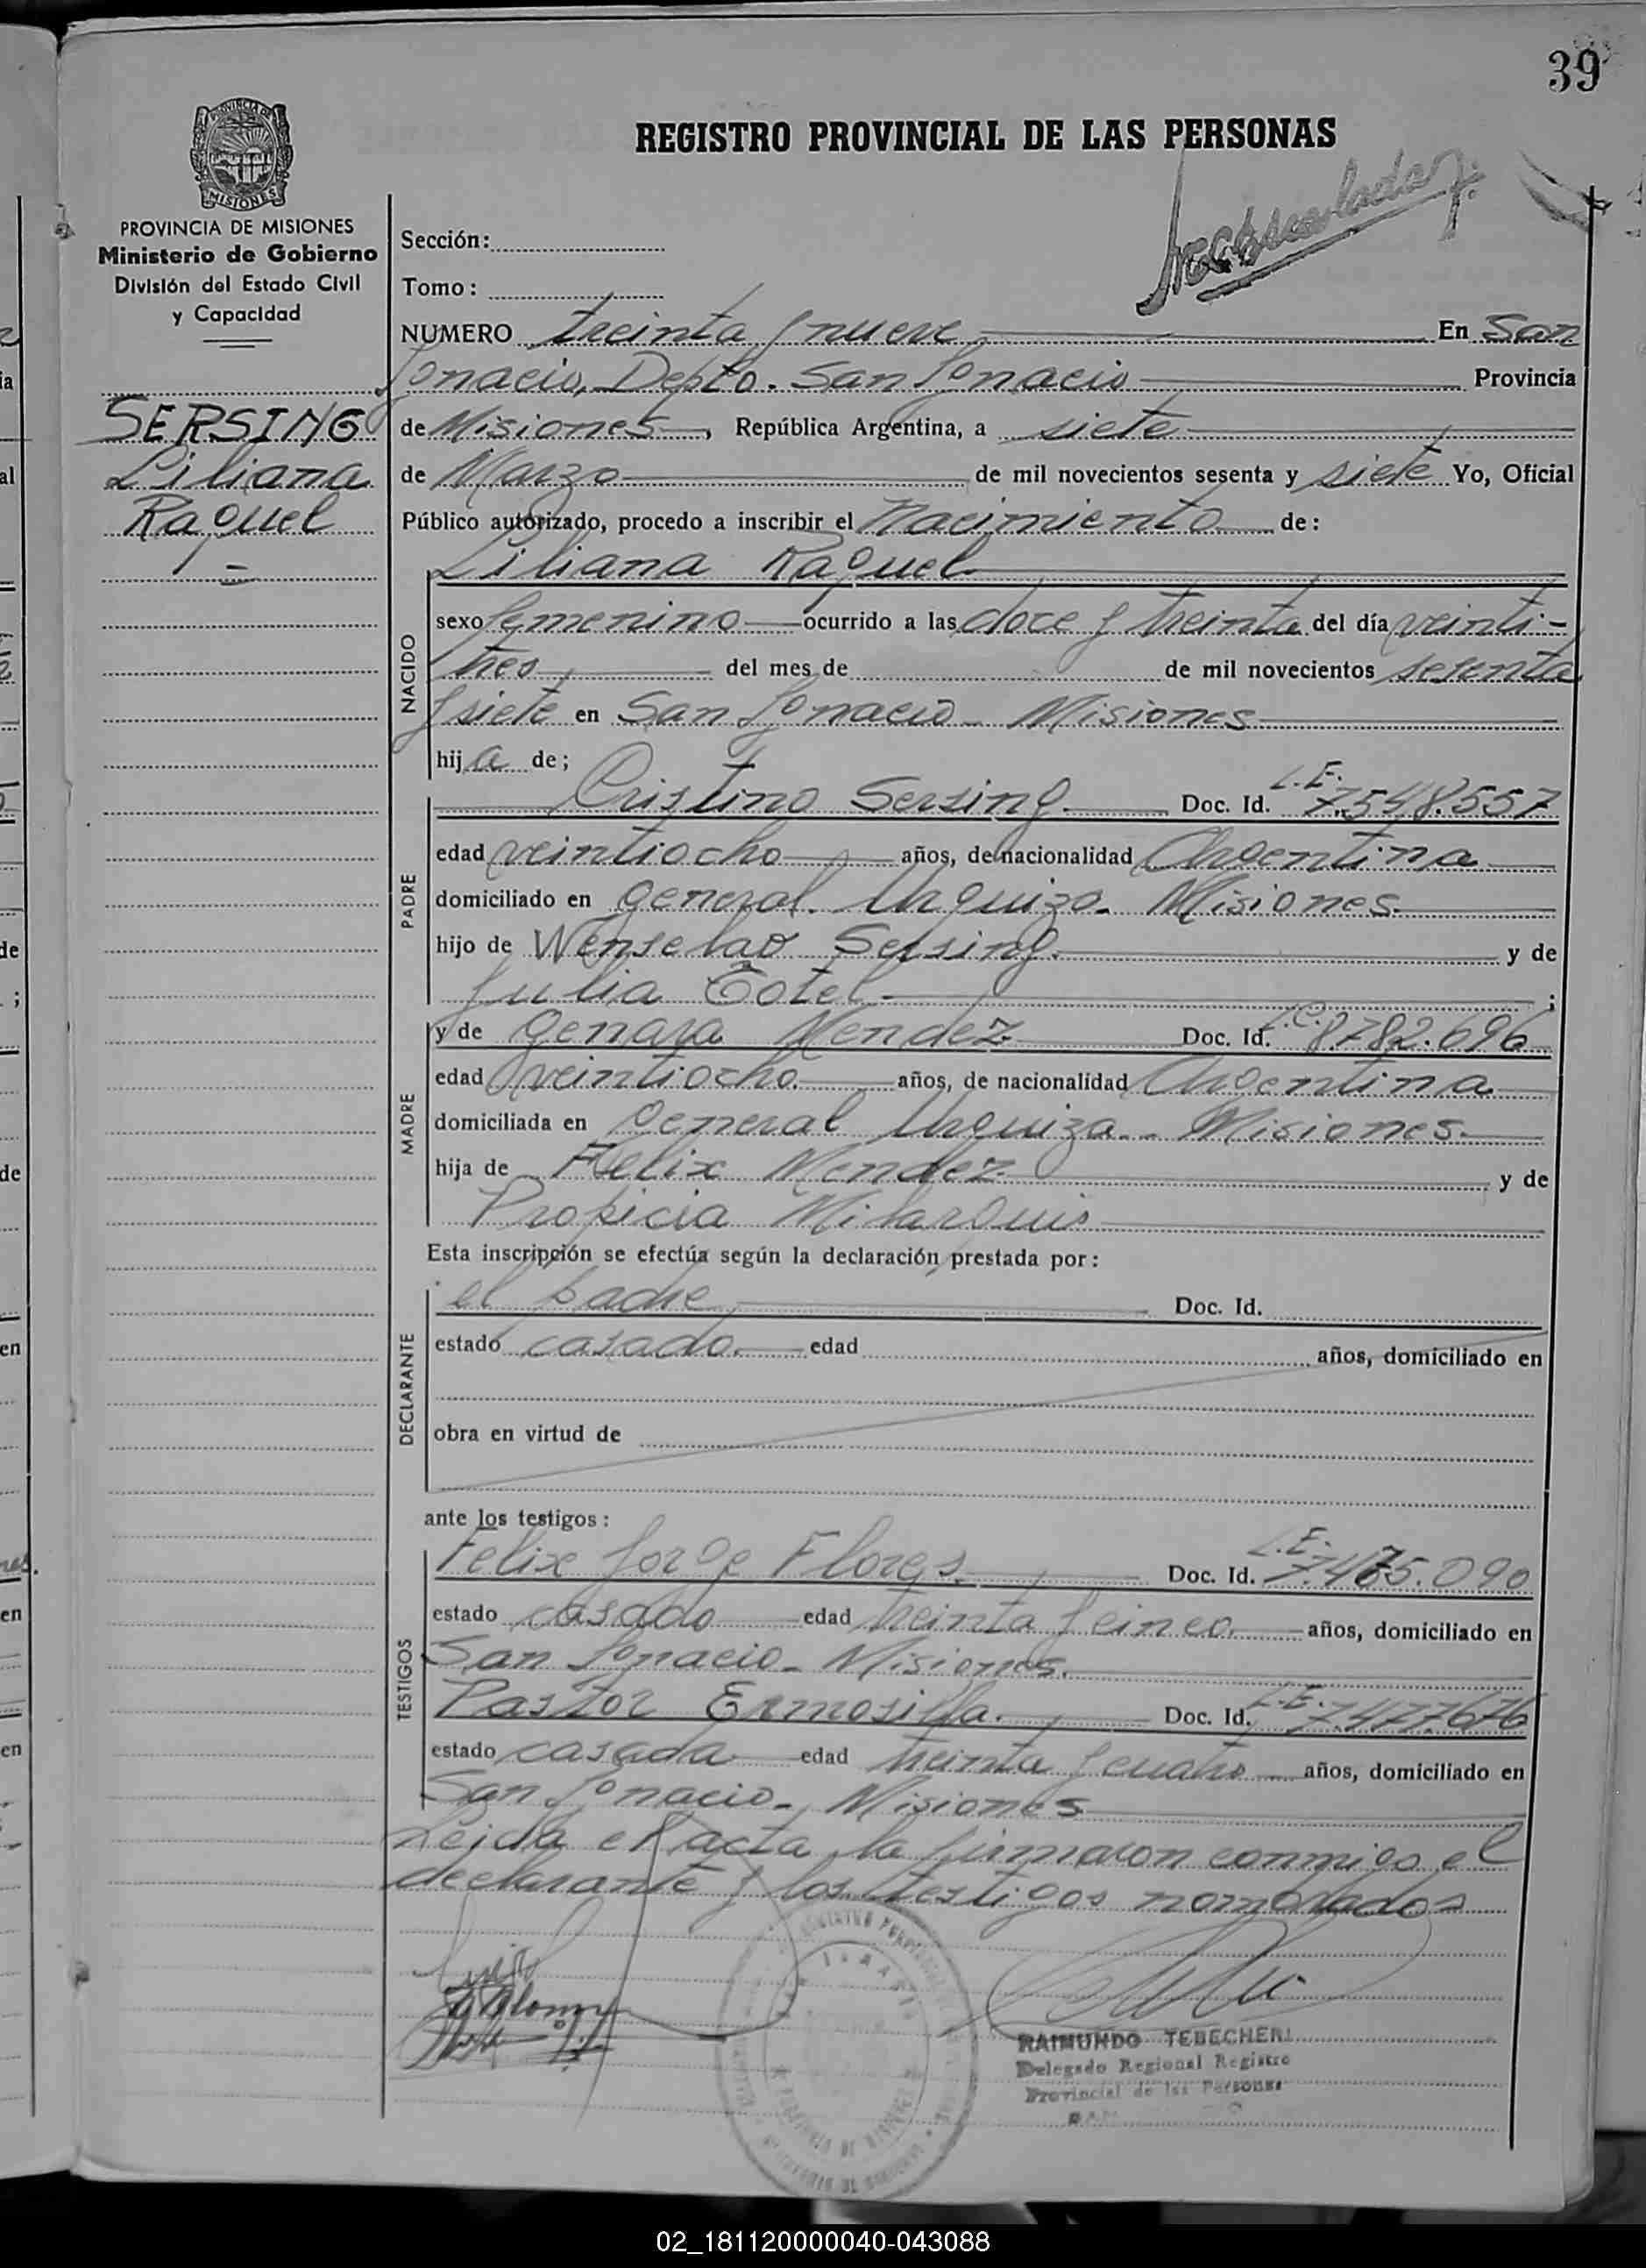 39
REGISTRO PROVINCIAL DE LAS PERSONAS
PROVINCIA DE MISIONES
Ministerio de Gobierno
División del Estado Civil
y Capacidad
SERSING
Liliana
Raquel
Sección:
Tomo:
NUMERO treinta y nueve En San
Ignacio, Depto. San Ignacio Provincia
de Misiones, República Argentina, a siete
de Marzo de mil novecientos sesenta y siete Yo, Oficial
Público autorizado, procedo a inscribir el Nacimiento de:
Liliana Raquel
NACIDO
sexo femenino ocurrido a las doce y treinta del día veinti-
tres del mes de de mil novecientos sesenta
y siete en San Ignacio - Misiones
hija de;
PADRE
Cristino Sersing. Doc. Id. L.E. 7.548.557
edad veintiocho años, de nacionalidad Argentina
domiciliado en General Urquiza. Misiones
hijo de Wenselao Sersing. y de
Julia Totel ;
MADRE
y de Genara Mendez Doc. Id. L.C. 8.782.696
edad veintiocho. años, de nacionalidad Argentina
domiciliada en General Urquiza - Misiones.
hija de Felix Mendez y de
Propicia
Esta inscripción se efectúa según la declaración prestada por:
DECLARANTE
el padre Doc. Id.
estado casado. edad años, domiciliado en
obra en virtud de
ante los testigos:
TESTIGOS
Felix Jorge Flores. Doc. Id. L.E. 7.475.090
estado casado edad treinta y cinco. años, domiciliado en
San Ignacio - Misiones.
Pastor Ermosilla. Doc. Id. L.E. 7.477.676
estado casada edad treinta y cuatro años, domiciliado en
San Ignacio - Misiones
Leida el acta la firmaron conmigo el
declarante y los testigos nombrados
RAIMUNDO TEBECHERI
Delegado Regional Registro
Provincial de las Personas
02_181120000040-043088